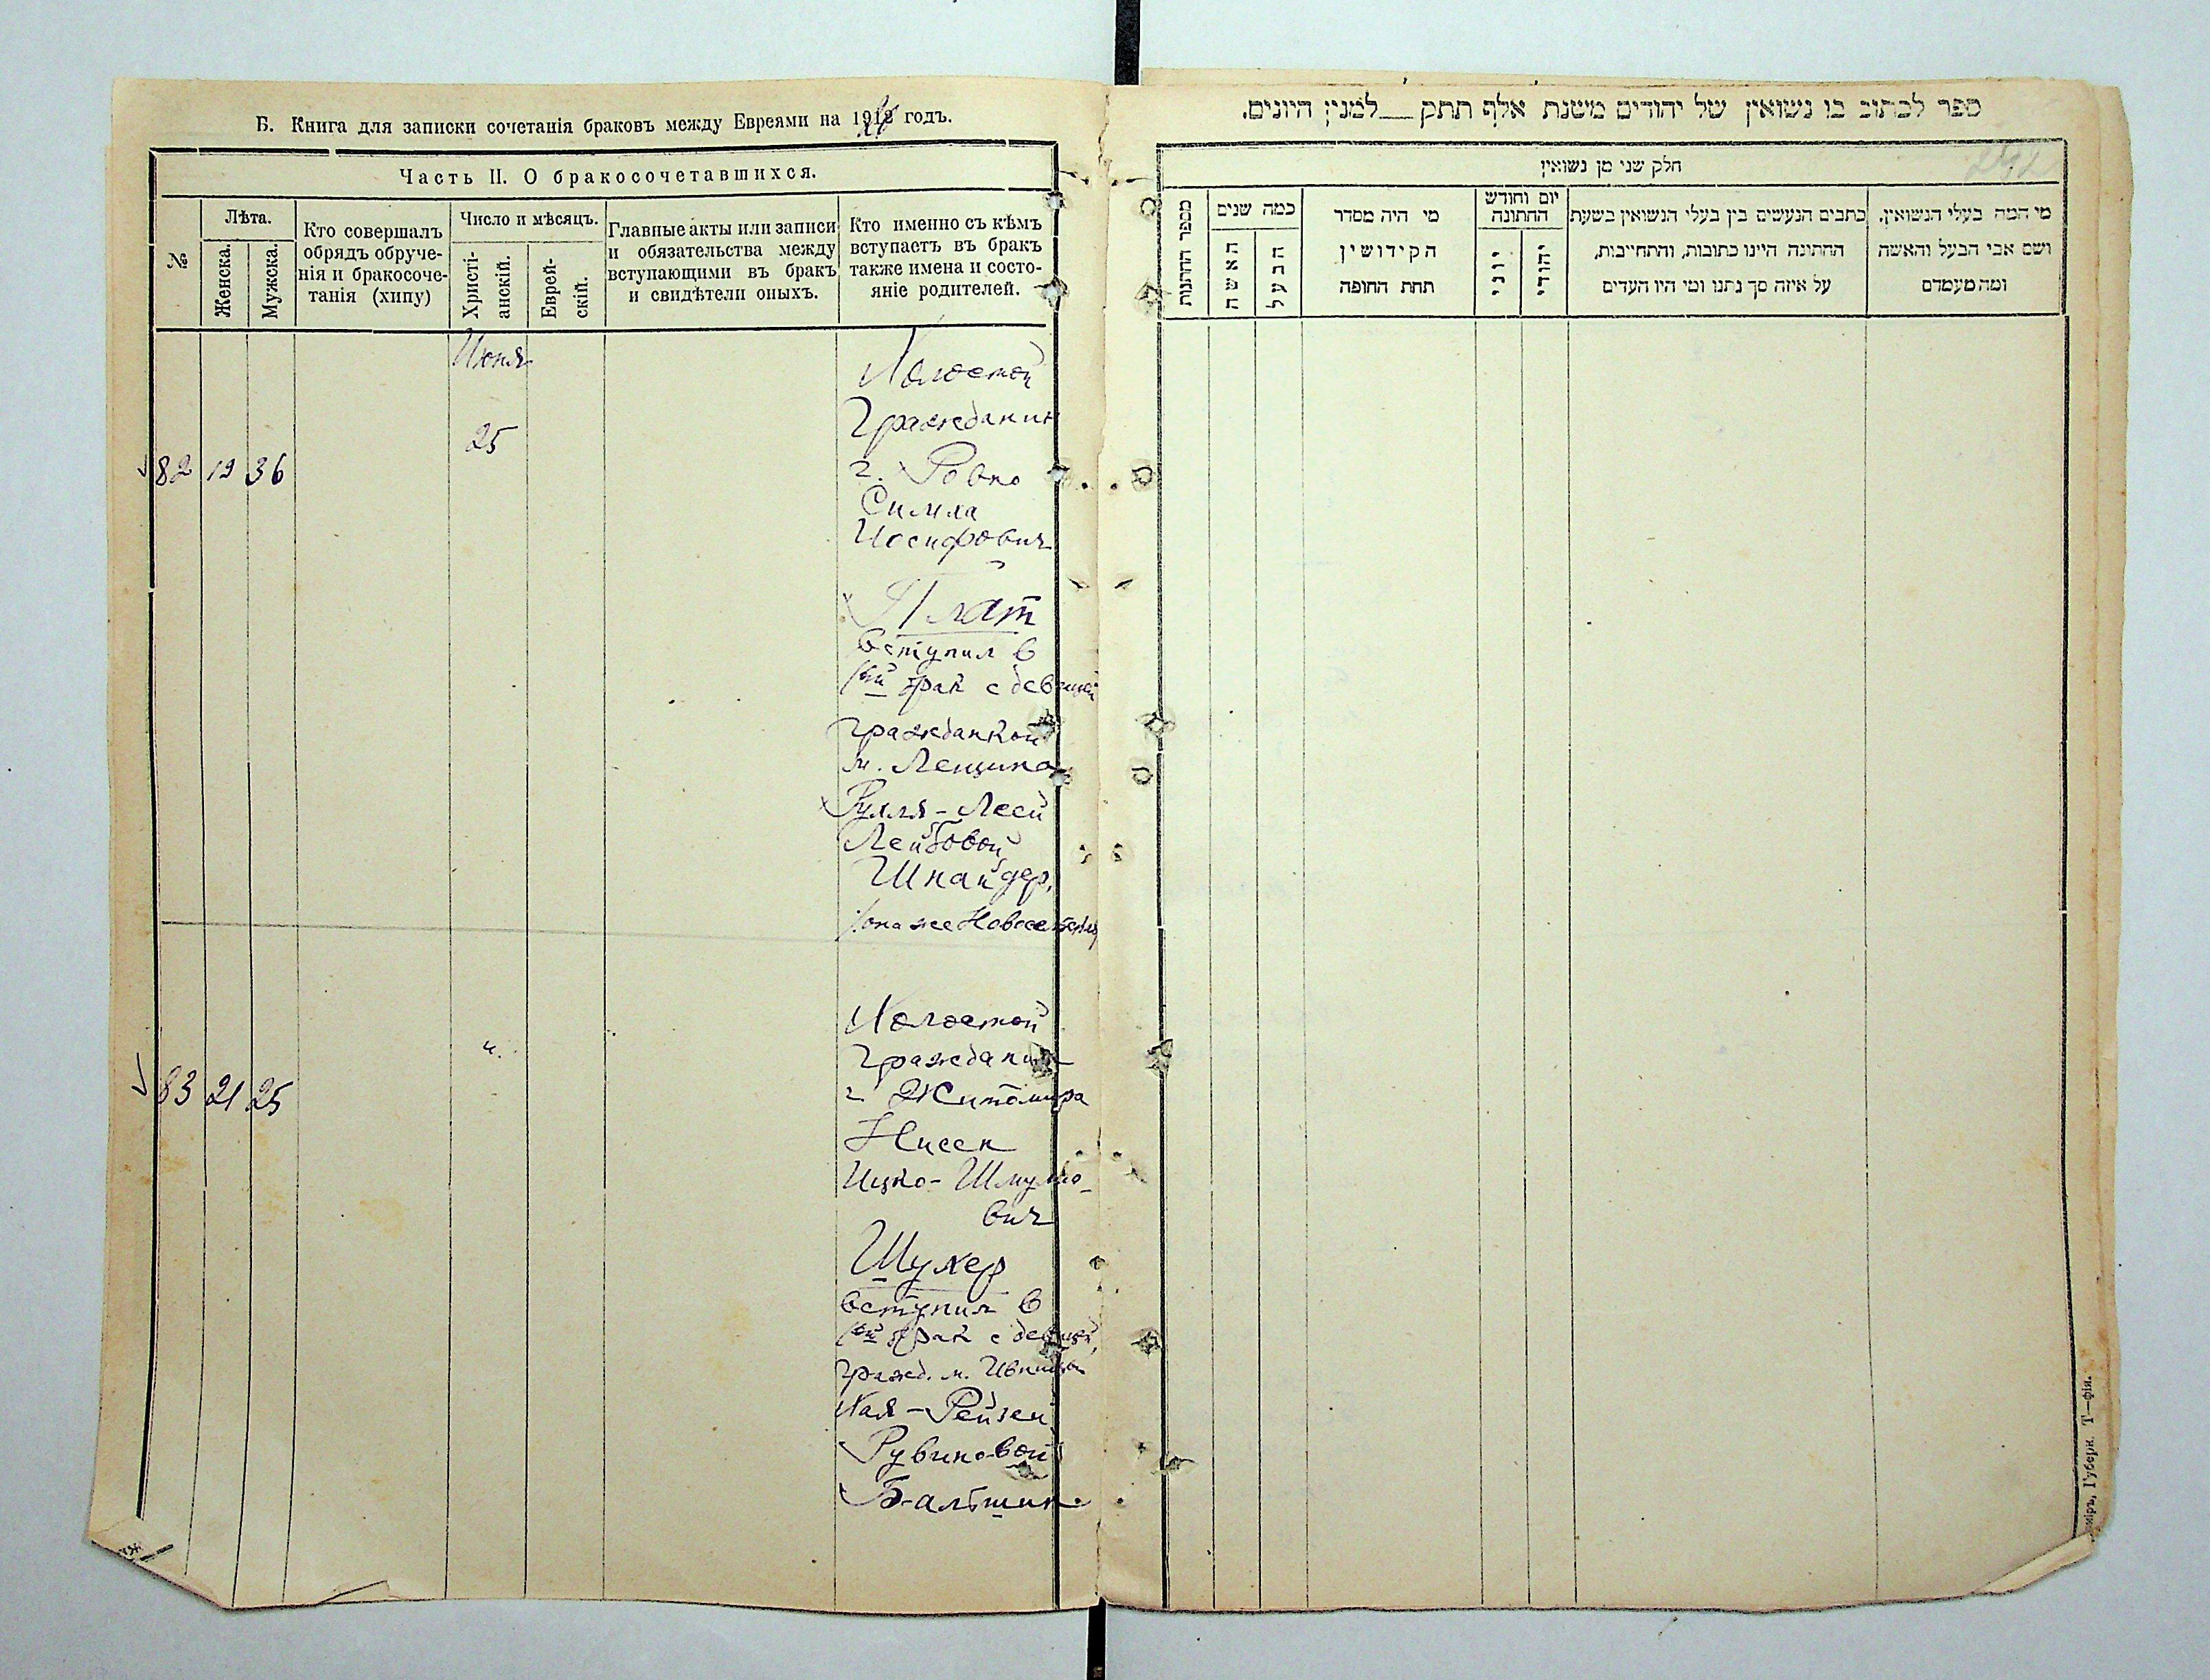 Б. Книга для записки сочетанія браковъ между Евреями на 191 годъ.
Часть II. О бракосочетавшихся.
№
Лѣта.
Женска.
Мужска.
Кто совершалъ
обрядъ обруче-
нія и бракосоче-
танія (хипу)
Число и мѣсяцъ.
Христі-
анскій.
Еврей-
скій.
Главные акты или записи
и обязательства между
вступающими въ бракъ
и свидѣтели оныхъ.
Кто именно съ кѣмъ
вступаетъ въ бракъ
также имена и состо-
яніе родителей.
Июня
25
82 19 36
Холостой
Гражданин
г. Ровно
Симха
Иосифович
Плат
вступил в
1ый брак с девицей
гражданкой
м. Лещина
Рухля-Леей
Лейбовой
Шнайдер,
она же
83 21 25
"
Холостой
Гражданин
г. Житомира
Нисен
Ицко-Шмулио-
вич
Шухер
вступил в
1ый брак с девицей,
гражд. м. Ивница
Хая-Рейзей
Рувиновой
Бальшин.
ספר לכתוב בו נשואין של יהודים משנת אלף תתק__למנין היונים.
חלק שני מן נשואין
מספר החתנות
כמה שנים
האשה
הבעל
מי היה מסדר
הקידושין
תחת החופה
יום וחודש
החתונה
יוני
יהודי
כתבים הנעשים בין בעלי הנשואין בשעת
החתונה היינו כתובות, והתחייבות,
על איזה סך נתנו ומי היו העדים
מי המה בעלי הנשואין,
ושם אבי הבעל והאשה
ומה מעמדם
Губерн. Т—фія.